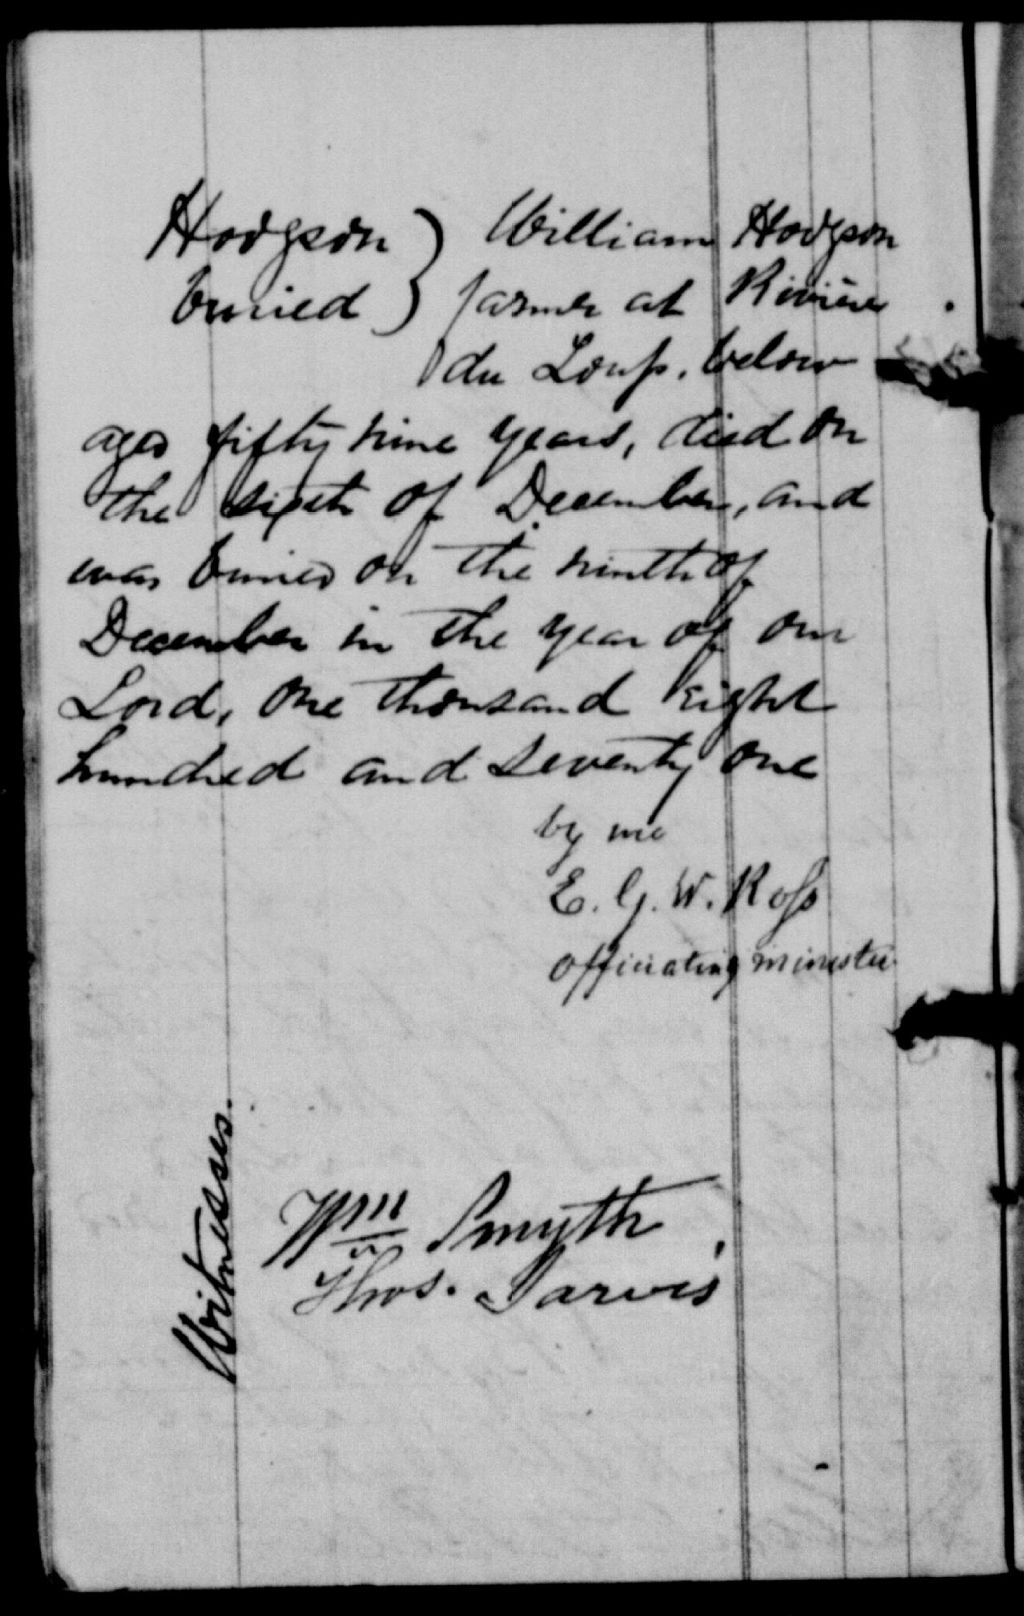 Hodgson ) William Hodgson
buried ) farmer at Rivière
du Loup, below
aged fifty nine years, died on
the sixth of December, and
was buried on the ninth of
December in the year of our
Lord, one thousand eight
hundred and seventy one
by me
E. G. W. Ross
officiating minister
Witnesses.
Wm Smyth
Thos. Jarvis